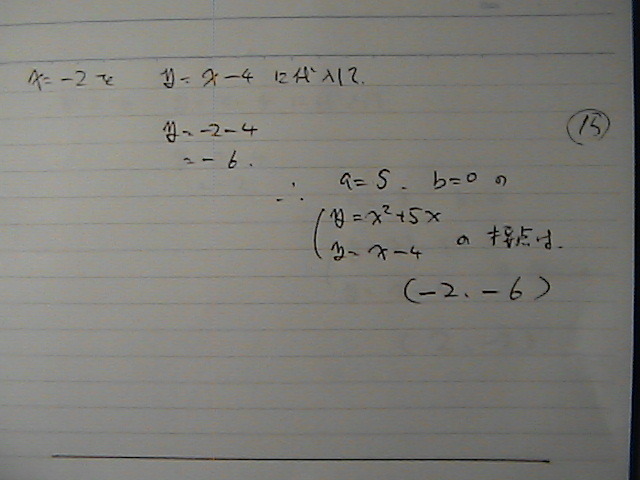 x = -2 を y = x - 4 に代入して.
y = -2 - 4
= - 6 .
⑮
∴ a = 5 . b = 0 の
y = x²+5x
y = x - 4 の 接点は.
(-2、-6)